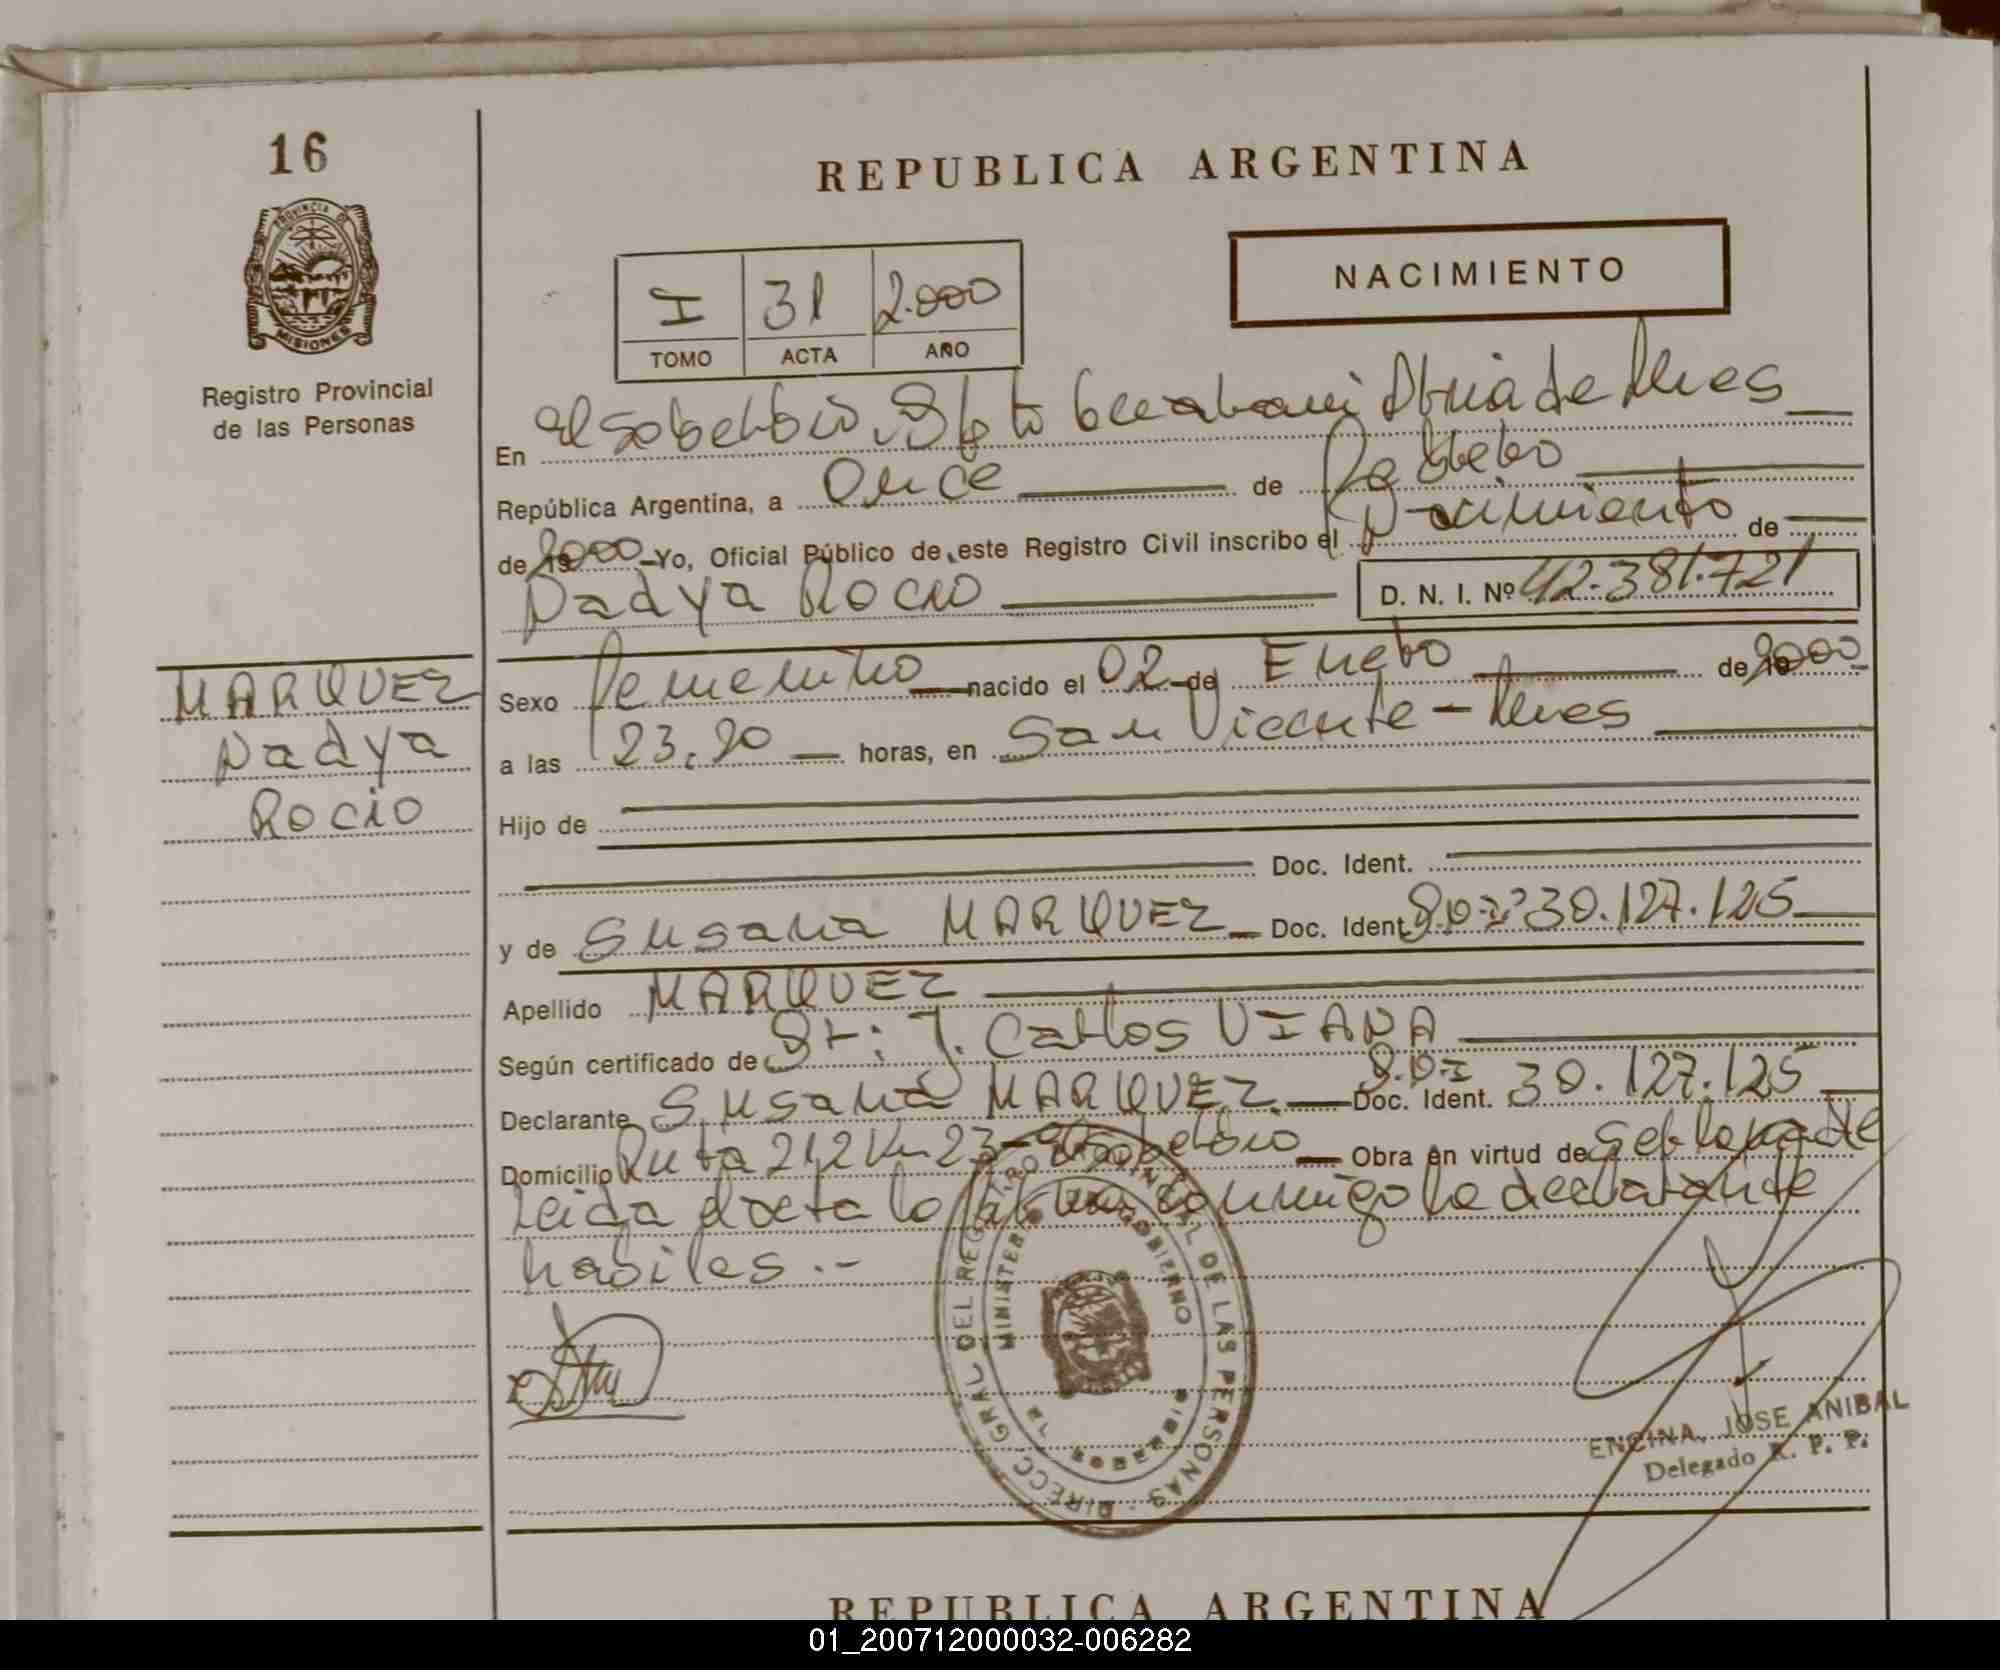 16
PROVINCIA DE
MISIONES
Registro Provincial
de las Personas
REPUBLICA ARGENTINA
I 31 2.000
TOMO ACTA AÑO
NACIMIENTO
En El Soberbio, Dpto Guarani Pcia de Mnes
República Argentina, a Once de Febrero
de 2000 Yo, Oficial Público de este Registro Civil inscribo el Nacimiento de
Nadya Rocio D. N. I. Nº 42.381.721
MARQUEZ
Nadya
Rocio
Sexo Femenino nacido el 02 de Enero de 2000
a las 23,20 horas, en San Vicente - Mnes
Hijo de
Doc. Ident.
y de Susana MARQUEZ Doc. Ident. 30.127.125
Apellido MARQUEZ
Según certificado de Dr: J. Carlos VIANA
Declarante Susana MARQUEZ Doc. Ident. 30.127.125
Domicilio Ruta 212 Km 23 - El Soberbio Obra en virtud de ser la madre
Leida el acta la firman conmigo la declarante
habiles.-
DIRECC. GRAL. DEL REGISTRO PROVINCIAL DE LAS PERSONAS
MINISTERIO DE GOBIERNO
ENCINA, JOSE ANIBAL
Delegado R. P. P.
REPUBLICA ARGENTINA
01_200712000032-006282